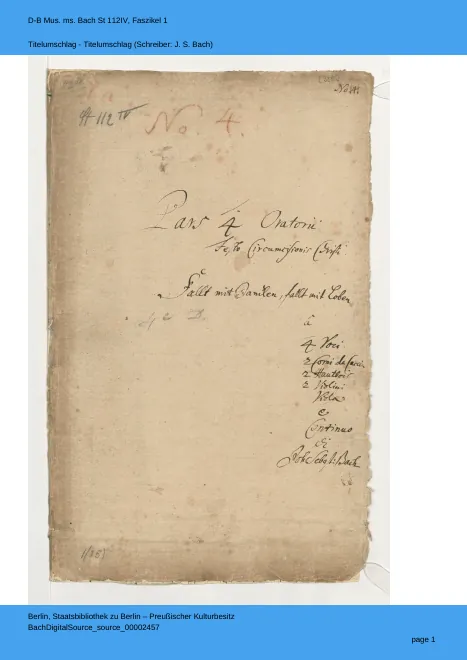 D-B Mus. ms. Bach St 112IV, Faszikel 1
Titelumschlag - Titelumschlag (Schreiber: J. S. Bach)
St 112 IV
No. 4.
Pars 4 Oratorii
Festo Circumcisionis Christi
Fallt mit Dancken, fallt mit Loben
à
4 Voci
2 Corni da Caccia
2 Hautbois
2 Violini
Viola
e
Continuo
di
Joh. Sebast. Bach
Berlin, Staatsbibliothek zu Berlin – Preußischer Kulturbesitz
BachDigitalSource_source_00002457
page 1